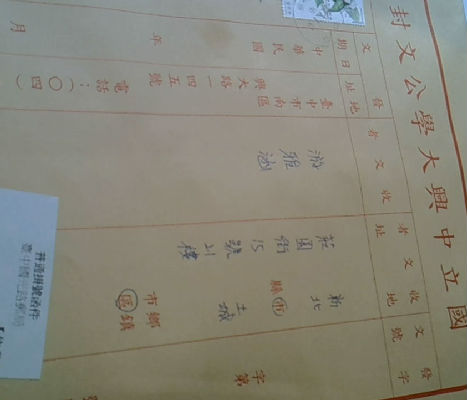 國立中興大學公文封
發文字號
字第
收文者地址
新北縣市
土城市鄉鎮區
莊園街15號21樓
收文者
游雅涵
發文地址
臺中市南區
興大路一四五號
電話：（〇四）
發文日期
中華民國 年 月
普通掛號函件